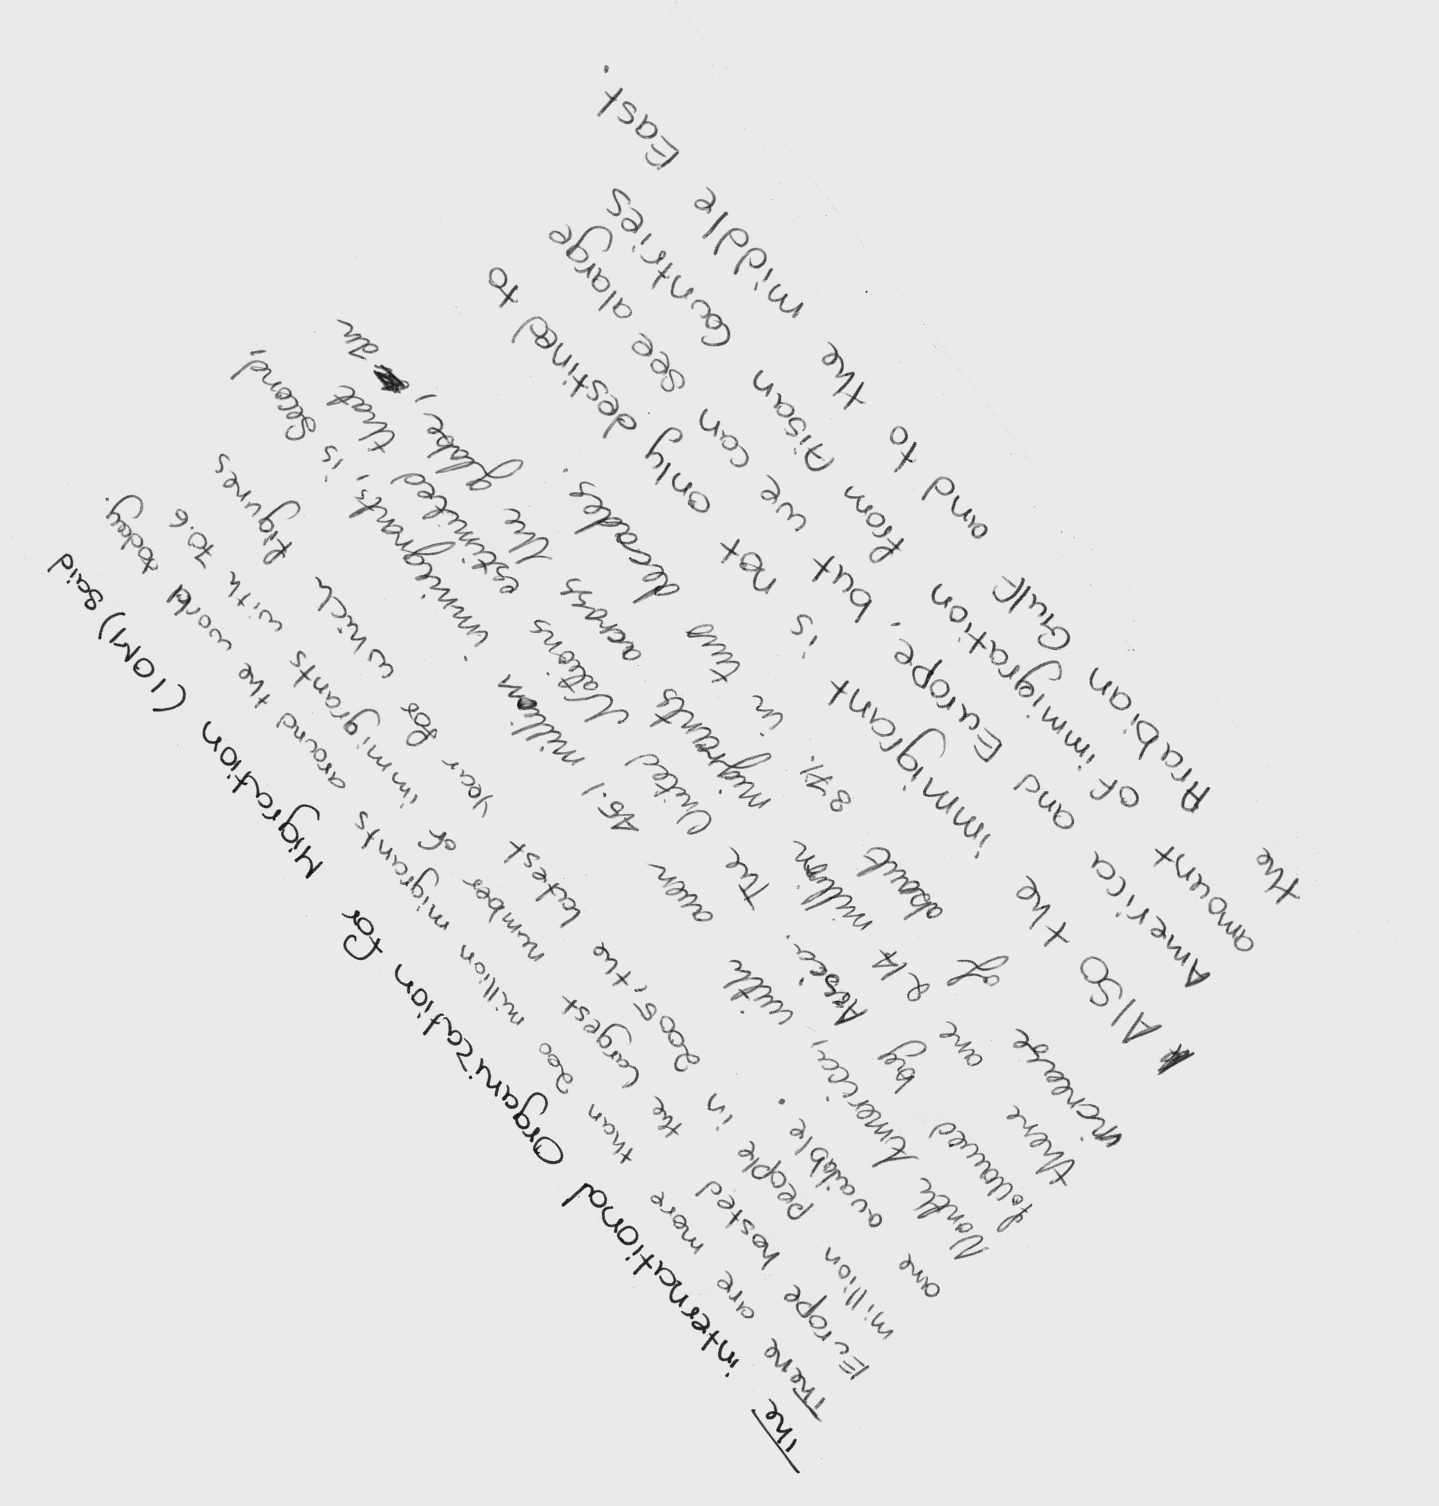 The international organization for Migration (IOM) said
There are more than 200 million migrants around the world today.
Europe hosted the largest number of immigrants with 70.6
million people in 2005, the latest year for which figures
are available.
North America, with over 45.1 million immigrants, is second,
followed by Assia. The United Nations estimited that
there are 214 million migrants across the globe, an
increase of about 37%. in two decades.
Also the immigrant is not only destined to
America and Europe, but we can see alarge
amount of immigration from Aisan Countries
the Arabian Gulf and to the middle East.